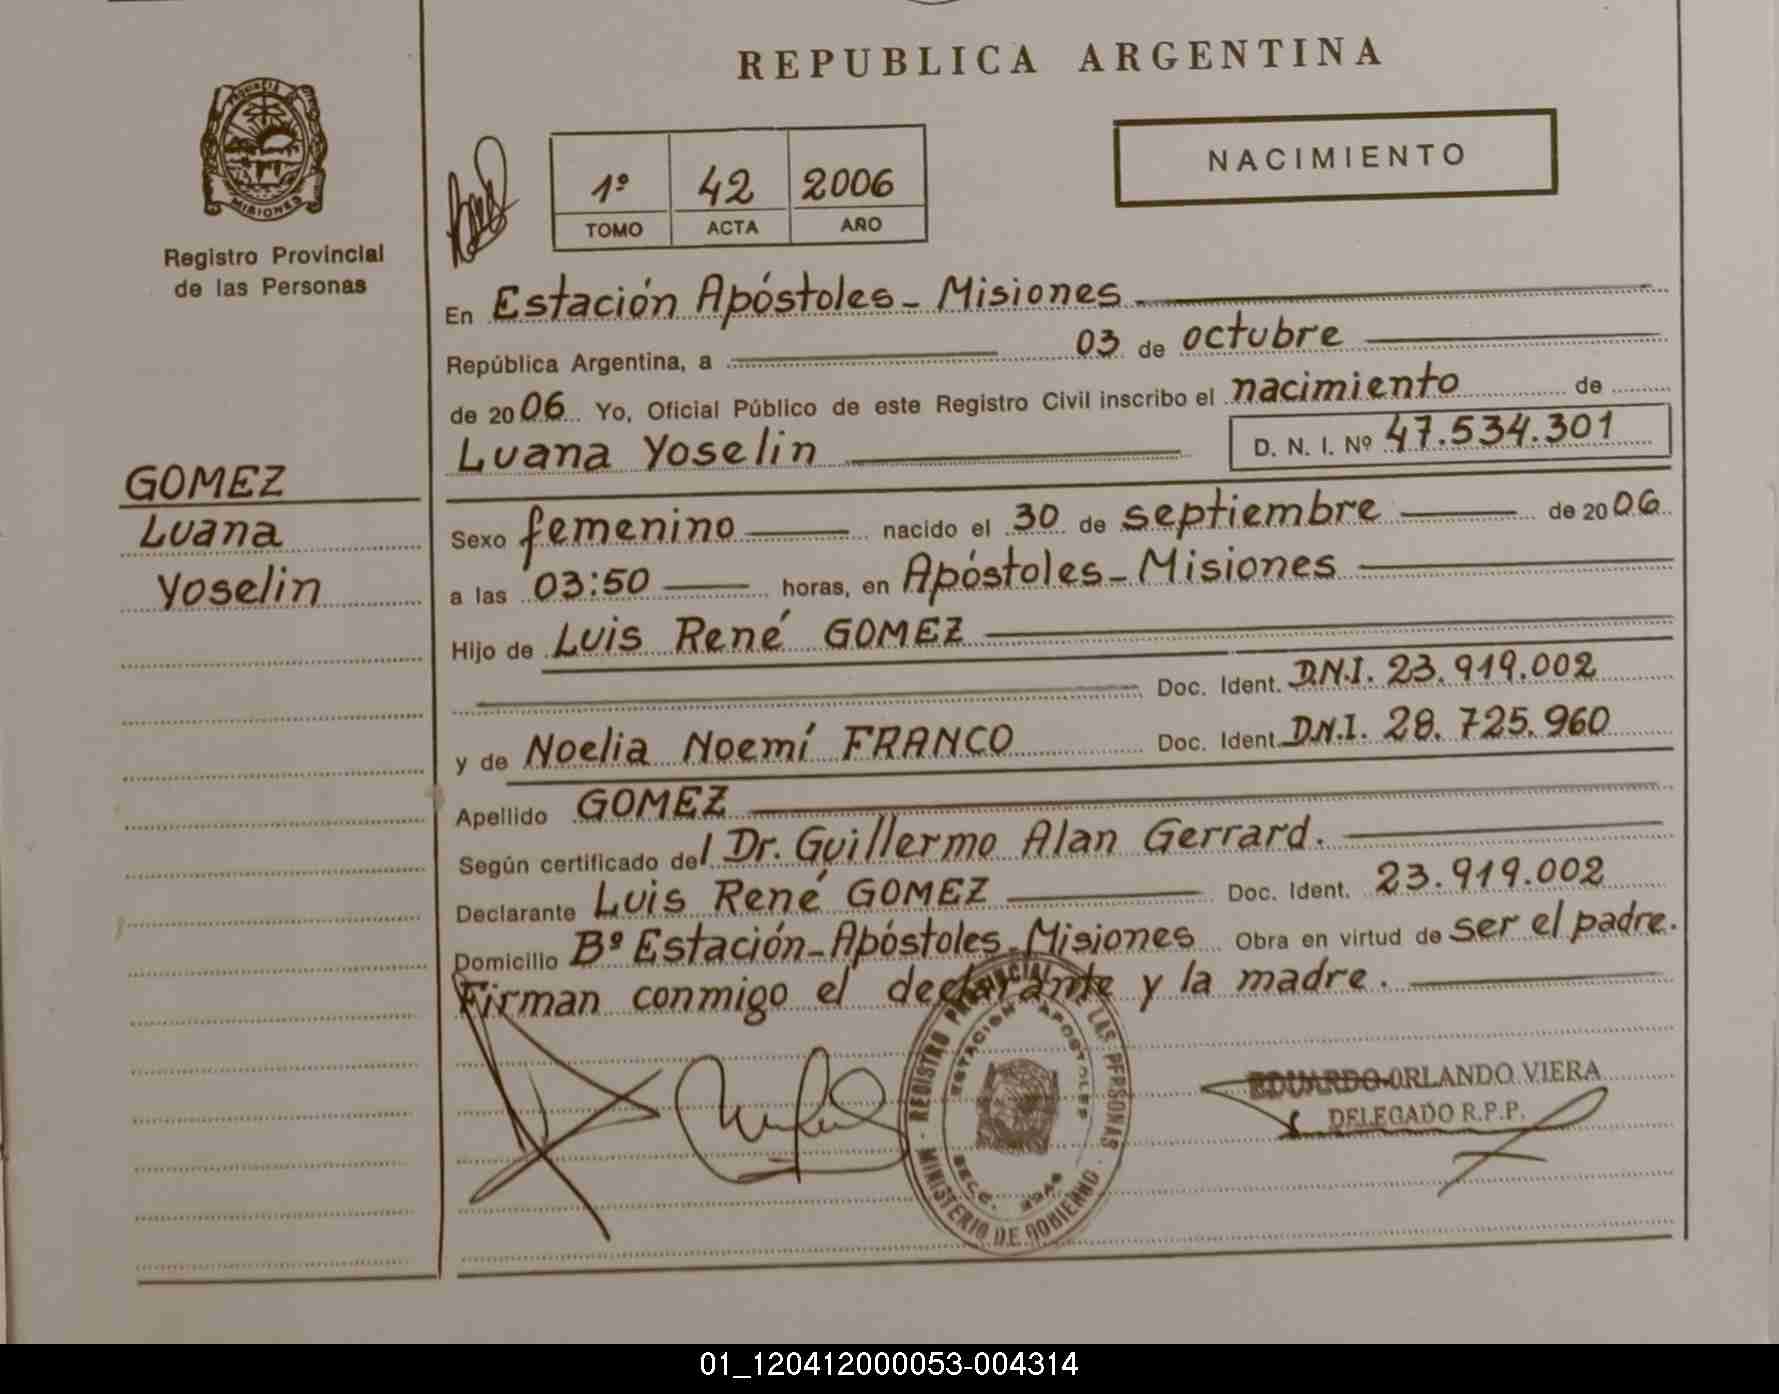 REPUBLICA ARGENTINA
PROVINCIA DE
MISIONES
Registro Provincial
de las Personas
1º 42 2006
TOMO ACTA AÑO
NACIMIENTO
En Estación Apóstoles - Misiones
República Argentina, a 03 de octubre
de 2006 Yo, Oficial Público de este Registro Civil inscribo el nacimiento de
Luana Yoselin D. N. I. Nº 47.534.301
GOMEZ
Luana
Yoselin
Sexo femenino nacido el 30 de septiembre de 2006
a las 03:50 horas, en Apóstoles - Misiones
Hijo de Luis René GOMEZ
Doc. Ident. D.N.I. 23.919.002
y de Noelia Noemí FRANCO Doc. Ident. D.N.I. 28.725.960
Apellido GOMEZ
Según certificado del Dr. Guillermo Alan Gerrard.
Declarante Luis René GOMEZ Doc. Ident. 23.919.002
Domicilio Bº Estación - Apóstoles - Misiones Obra en virtud de ser el padre.
Firman conmigo el declarante y la madre.
REGISTRO PROVINCIAL DE LAS PERSONAS
MINISTERIO DE GOBIERNO
ESTACION APOSTOLES
SECC.
EDUARDO ORLANDO VIERA
DELEGADO R.P.P.
01_120412000053-004314